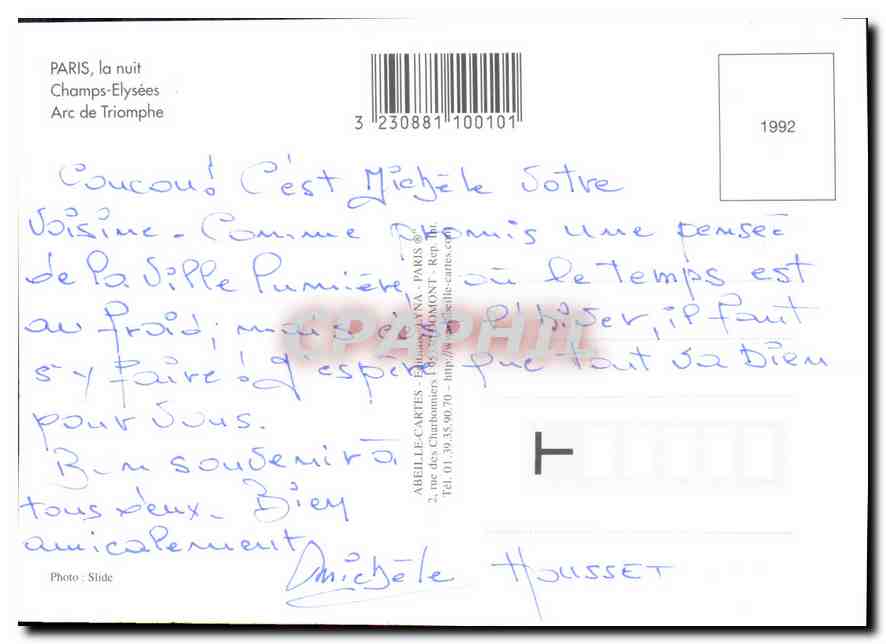 PARIS, la nuit
Champs-Elysées
Arc de Triomphe
3 230881 100101
1992
Coucou! C'est Michèle votre
voisine. Comme promis une pensée
de la Ville Lumière, où le temps est
au froid, mais c'est l'hiver, il faut
s'y faire! J'espère que tout va bien
pour vous.
Bon souvenir à
tous deux. Bien
amicalement
Michèle HOUSSET
ABEILLE-CARTES - Editions LYNA - PARIS ®
2, rue des Charbonniers - 95 DOMONT - Rep. Int.
Tél. 01.39.35.90.70 - http://www.abeille-cartes.com
Photo : Slide
CPAPHIL